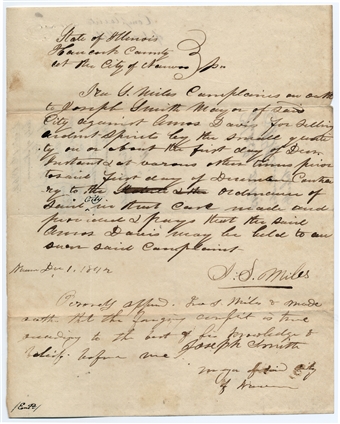 State of Illinois
Hancock County
At the City of Nauvoo } ss
Ira S. Miles Complaines on oath
to Joseph Smith Mayor of said
City against Amos Davis for Selling
ardent Spirits by the small quanti
ty on or about the first day of Dem
Instant & at various other times prior
to said first day of December Contra
ry to the Ordinances of
said City in that Case made and
provided & prays that the said
Amos Davis may be held to an
swer said Complaint
Nauvoo Dec 1. 1842
I. S. Miles
Personly appd. Ira S. Miles & made
oath that the foregoing complaint is true
according to the best of his knowledge &
belief before me Joseph Smith
mayor of said City
of Nauvoo